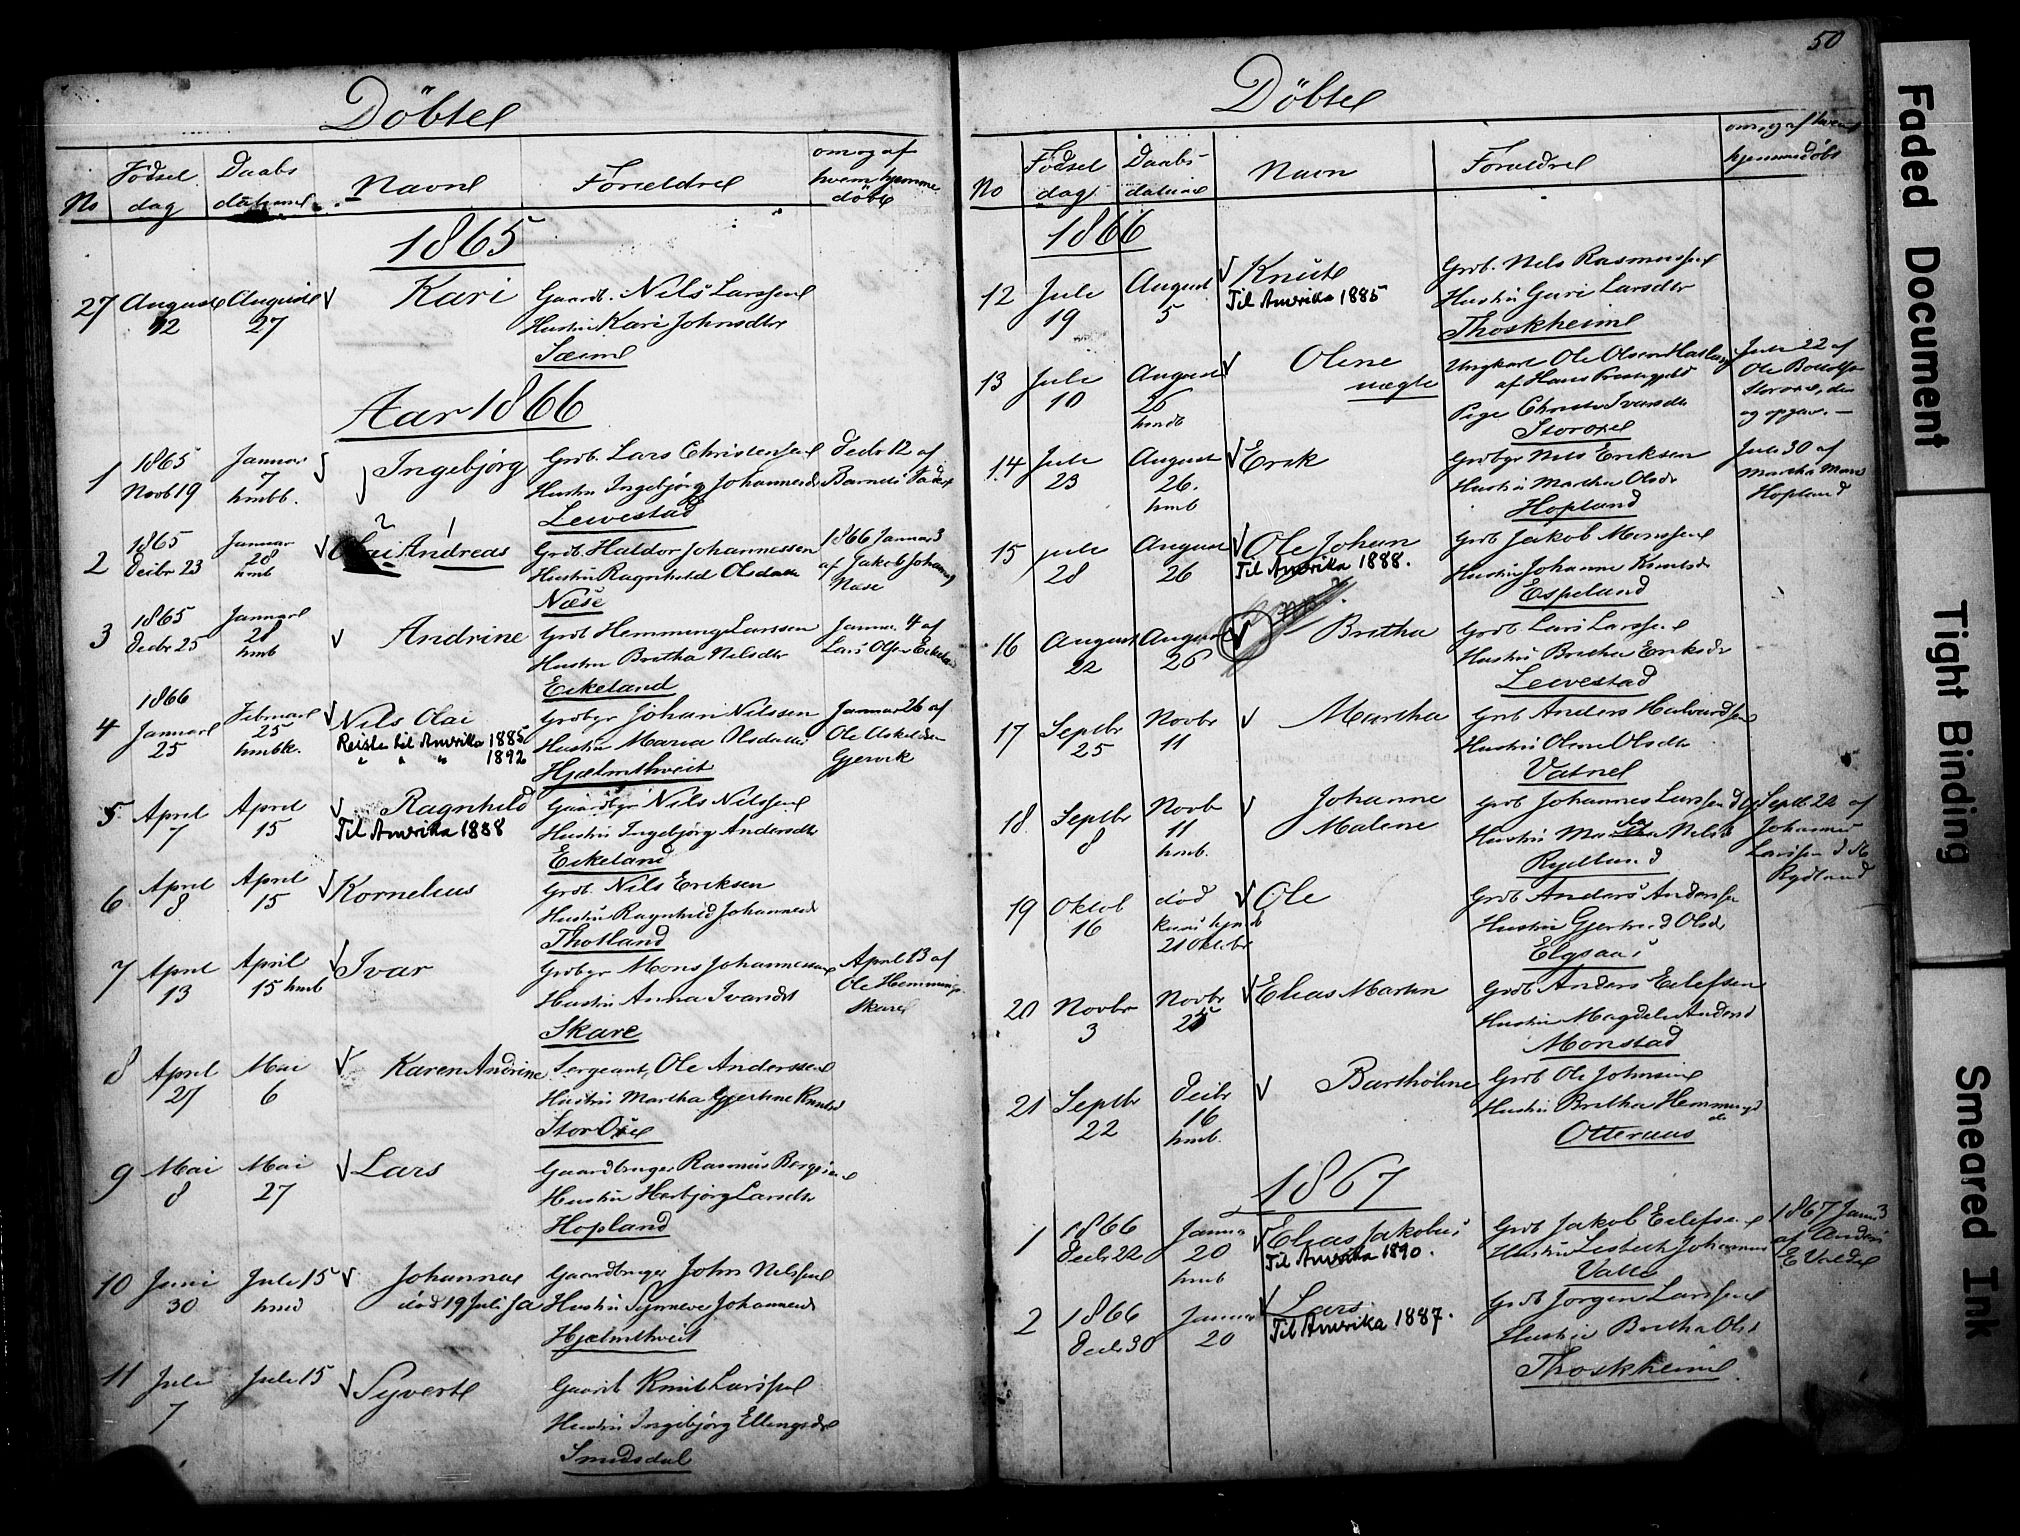 Döbte
No
Födsel dag
Daabs datum
Navne
Forældre
om og af hvem hjemme döbt
1865
27
August 12
August 27
Kari
Gaardb. Nils Larssen
Hustru Kari Johnsdtr
Sæim
Aar 1866
1
1865 Novb 19
Januar 7 hmbb.
Ingebjörg
Grdb. Lars Christensen
Hustru Ingebjörg Johannesdr
Levestad
Decbr 12 af
Barnets Fader
2
1865 Decbr 23
Januar 28 hmb
Olai Andreas
Grdb. Haldor Johannessen
Hustru Ragnhild Olsdatter
Næse
1866 Januar 3
af Jakob Johannes
Næse
3
1865 Decbr 25
Januar 28 hmb
Andrine
Grdb Hemming Larssen
Hustru Bretha Nilsdtr
Eikeland
Januar 4 af
Lars Olsen Eikeland
4
1866 Januar 25
Februar 25 hmbk.
Nils Olai
Reiste til Amerika 1885
" " " 1892
Grdbgr Johan Nilssen
Hustru Maria Olsdatter
Hjælmthveit
Januar 26 af
Ole Askeldsen
Gjervik
5
April 7
April 15
Ragnhild
Til Amerika 1888
Gaardbgr Nils Nilssen
Hustru Ingebjörg Andersdtr
Eikeland
6
April 8
April 15
Kornelius
Grdb. Nils Eriksen
Hustru Ragnhild Johannesd
Thotland
7
April 13
April 15 hmb
Ivar
Grdbgr Mons Johannessen
Hustru Anna Ivarsdt
Skare
April 13 af
Ole Hemmings.
Skare
8
April 27
Mai 6
Karen Andrine
Sergeant, Ole Anderssen
Hustru Martha Gjertine Knutsd
Stor Oxe
9
Mai 8
Mai 27
Lars
Gaardbruger Rasmus Bergesen
Hustru Herbjörg Larsdtr
Hopland
10
Juni 30
Juli 15 hmd
Johannes
död 19 Juli s a
Gaardbruger John Nilssen
Hustru Synneve Johannesd
Hjælmthveit
11
Juli 7
Juli 15
Syvert
Gaardb Knut Larssen
Hustru Ingebjörg Ellingsdtr
Smidsdal
50
Döbte
No
Födsel dag
Daabs datum
Navn
Forældre
om og af hvem
hjemmedöbt
1866
12
Juli 19
August 5
Knut
Til Amerika 1885
Grdb. Nils Rasmussen
Hustru Guri Larsdtr
Thoskheim
13
Juli 10
August 26 hmdb
Olene
uægte
Ungkarl Ole Olsen Hasling
af Hans Prestegjeld
Pige Christi Ivarsdtr
Storoxe
Juli 22 af
Ole Bottolfsen
Storoxe, den
og opgav. —
14
Juli 23
August 26. hmb
Erik
Grdbgr Nils Eriksen
Hustru Martha Olsdr
Hopland
Juli 30 af
Martha Mons
Hopland
15
Juli 28
August 26
Ole Johan
Til Amerika 1888.
Grdb Jakob Monssen
Hustru Johanne Knutsdr
Espeland
16
August 22
August 26
Bretha
Grdb. Lars Larssen
Hustru Bretha Eriksdr
Levestad
17
Septbr 25
Novbr 11
Martha
Grdb Anders Halvardsen
Hustru Oline Olsdtr
Vatne
18
Septbr 8
Novbr 11 hmb.
Johanne
Malene
Grdb Johannes Larssen d y
Hustru Nilsd
Rydland
Septb 22 af
Johannes
Larssen d y
Rydland
19
Oktob 16
död
21 Oktbr
Ole
Grdb Anders Anderssen
Hustru Gjertrud Olsdr
Elgsaas
20
Novbr 3
Novbr 25
Elias Martin
Grdb Anders Eilefsen
Hustru Magdele Andersd
Monstad
21
Septbr 22
Decbr 16 hmb.
Bartholine
Grdb Ole Johnsen
Hustru Bretha Hemmingsd
Otteraas
1867
1
1866 Decbr 22
Januar 20 hmb
Elias Jakobus
Til Amerika 1890.
Grdb Jakob Eilefsen
Hustru Lisbeth Johannes
Valle
1867 Janu 3
af Anders
E Valde
2
1866 Decbr 30
Januar 20
Lars
Til Amerika 1887.
Grdb Jörgen Larssen
Hustru Bretha Olsd
Thoskheim
Faded Document
Tight Binding
Smeared Ink